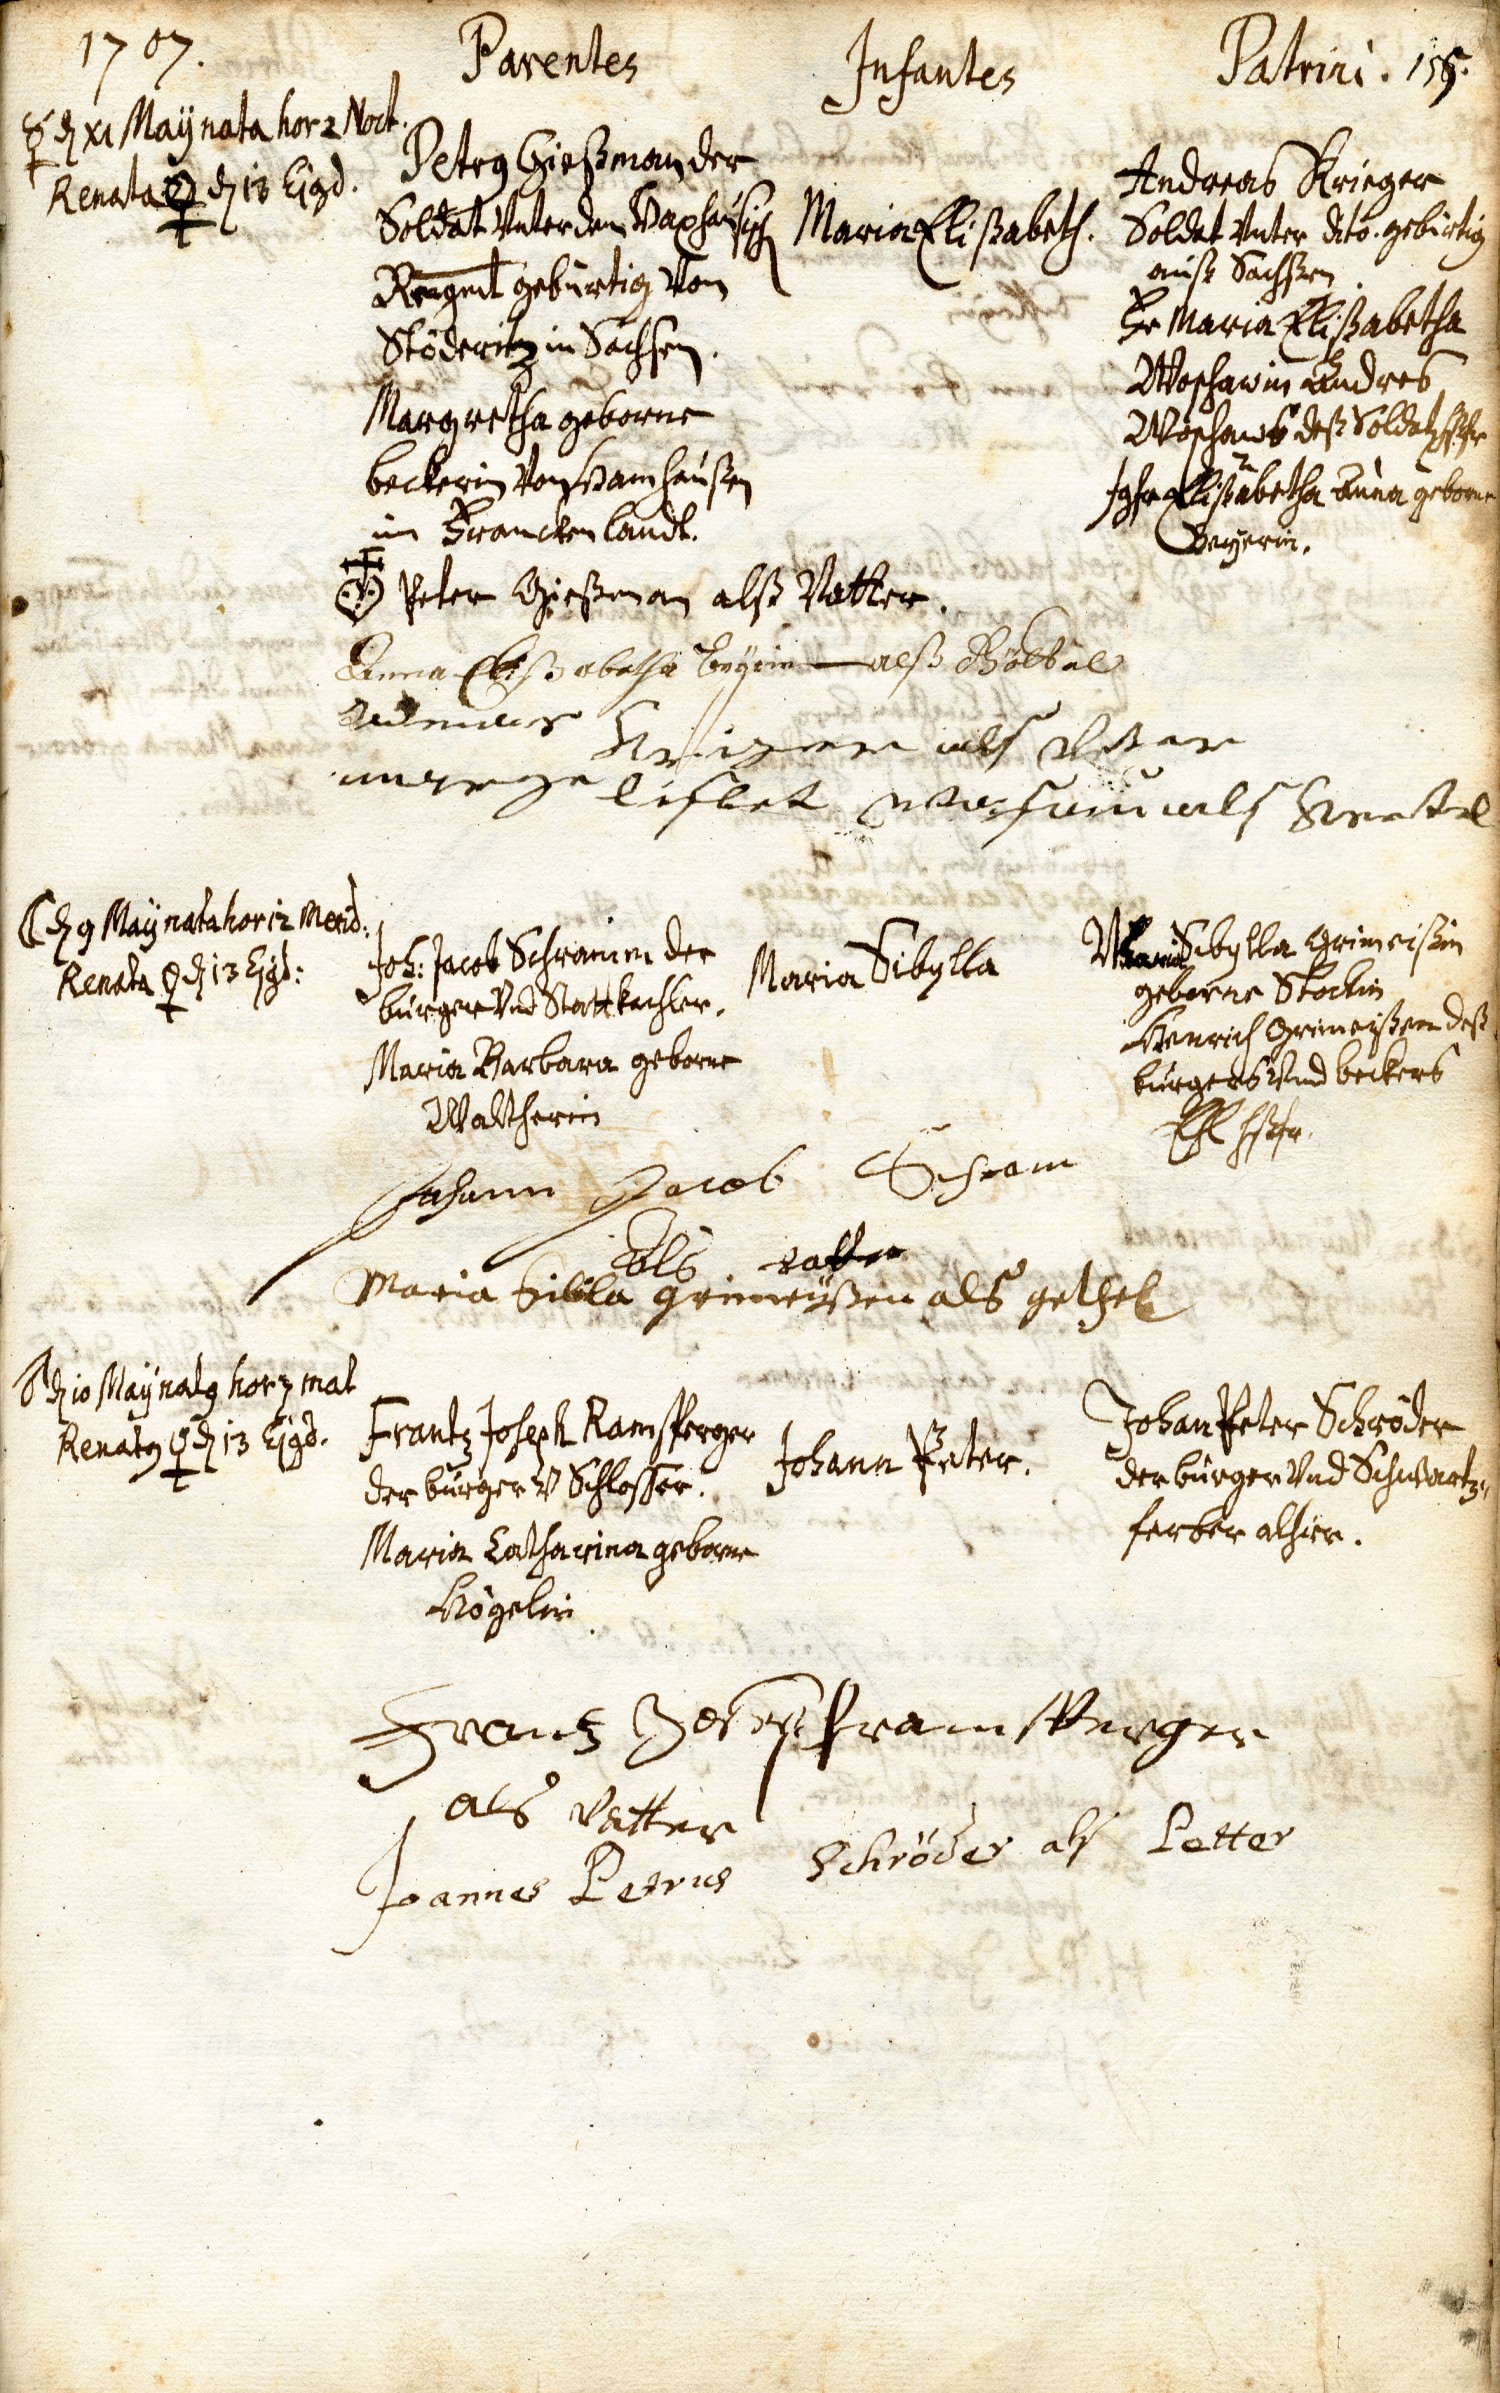 1707.
Parentes
Infantes
Patrini. 155.
☿ d xi Maÿ nata hor 2 Noct.
Renata ♀ d 13 Ejgd.
Petrg Gießman der
Soldat Unter dem
Regmt gebürtig Von
Stöderitz in Sachsen.
Margretha geborne
beckerin Von
im Francken landt.
Maria Elißabeth.
Andreas Krieger
Soldat Unter dito. gebürtig
auß Sachßen
Fr Maria Elißabetha
Woschawin Andres
Woschaws deß Soldat
Jgfr Elißabetha Anna geborne
Beyerin.
Peter Gießman alß Vatter.
Anna Elißabetha Beyrin alß Göttel
Krizer als
als
☾ d 9 Maÿ nata hor 12 Merid:
Renata ♀ d 13 Ejgd:
Joh: Jacob Schramm der
bürger Und Statt
Maria Barbara geborne
Waltherin
Maria Sibylla
Maria Sibylla Grimeißin
geborne Stockin
Henrich Grimeißen deß
bürgers Und beckers
Ehl hßfr.
Johann Jacob Schram
Als vatter
Maria Sibila grimeÿßin als gethel
♂ d 10 Maÿ natg hor 3 mat
Renatg ♀ d 13 Ejgd.
Frantz Joseph Ramsperger
der bürger V Schlosser.
Maria Catharina geborne
Kögelin
Johann Peter.
Johan Peter Schröder
der bürger Und Schwartz„
ferber alhier.
Frantz Joseph ramsperger
als Vatter
Joannes Petrus Schröder als Petter